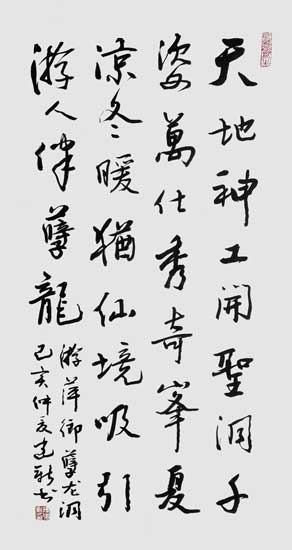 天地神工開聖洞千
姿萬仕秀奇峯夏
凉冬暖猶仙境吸引
游人伴孽龍
游萍鄉孽龙洞
己亥仲夏建新书